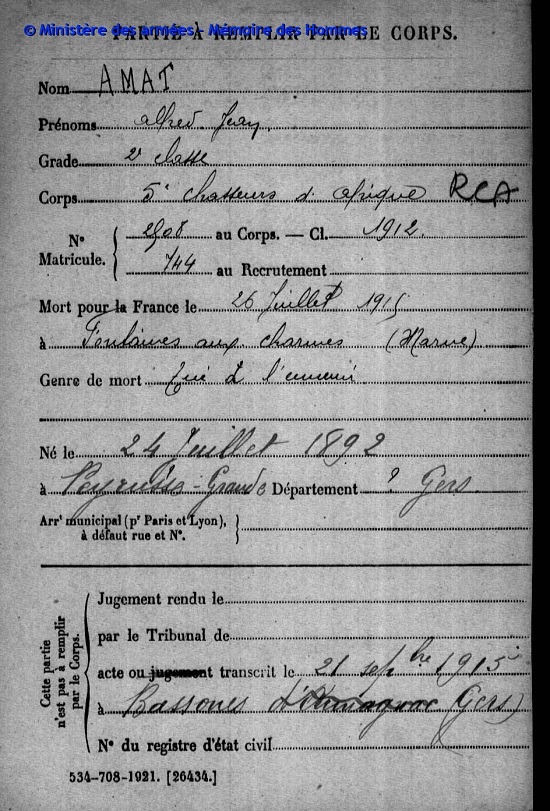 © Ministère des armées - Mémoire des Hommes
PARTIE À REMPLIR PAR LE CORPS.
Nom AMAT
Prénoms alfred Jean
Grade 2e classe
Corps 5e chasseurs d'afrique RCA
N° Matricule. { 2908 au Corps. — Cl. 1912.
744 au Recrutement
Mort pour la France le 26 Juillet 1915
à Fontaines aux charmes (Marne)
Genre de mort Tué à l'ennemi
Né le 24 Juillet 1892
à Peyrusse-Grande Département ? Gers
Arrt municipal (pr Paris et Lyon), à défaut rue et N°. }
Cette partie n'est pas à remplir par le Corps.
Jugement rendu le
par le Tribunal de
acte ou jugement transcrit le 21 sepbre 1915
à Bassoues d'Armagnac (Gers)
N° du registre d'état civil
534-708-1921. [26434.]